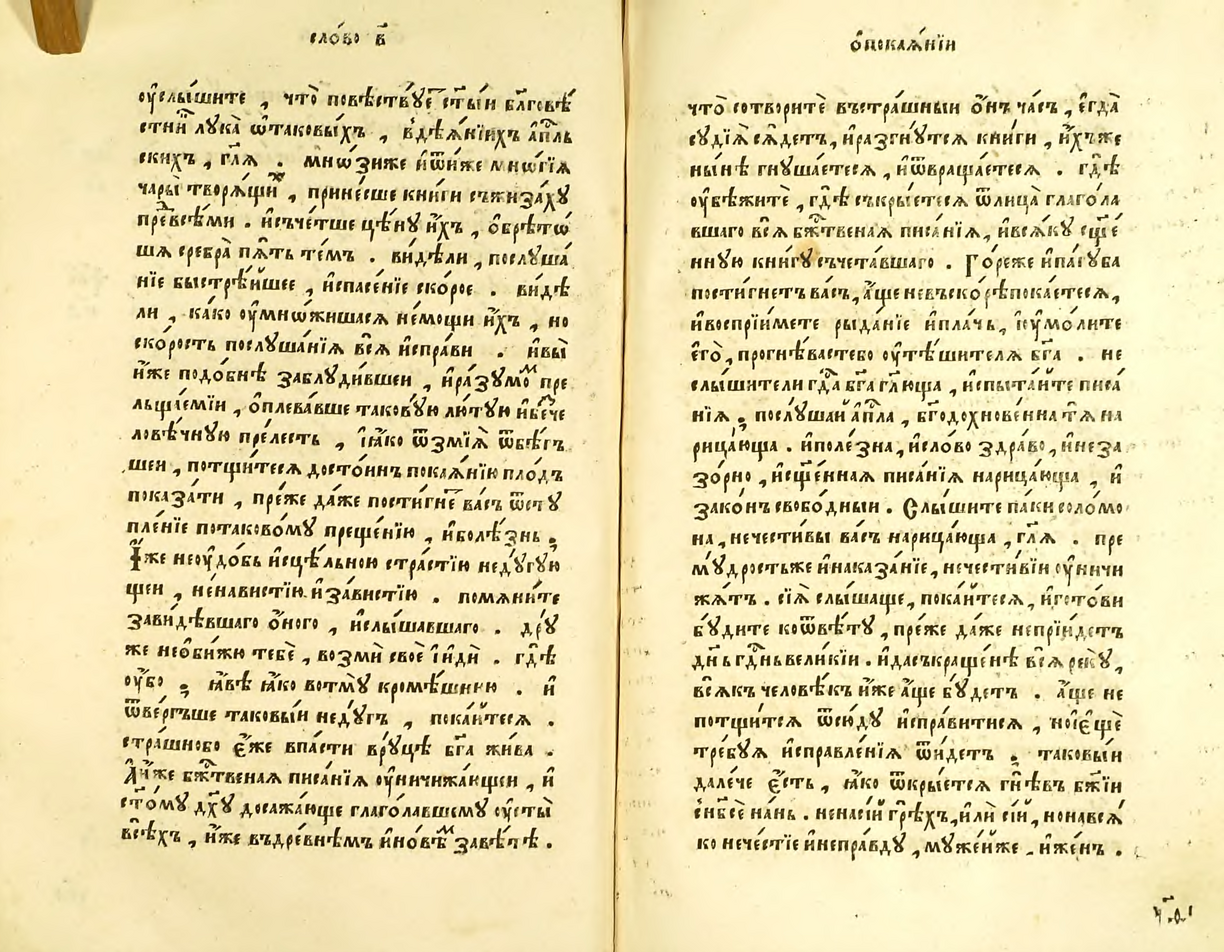 сло́во в҃
ᲂу҆слы́шите , что̀ повѣ́ствꙋе҇ ст҃ы́и бл҃говѣ́
стни҇ лꙋка̀ ѡ҆таковы́хъ , вдѣѧ́нїихъ а҆п҇ль
скихъ , гл҃ѧ . мнѡ́зиже и҆ѿи́же мнѡ́гїѧ
чары̀ творѧ́щїи҇ , прине́сше кни́ги съжиза́хꙋ
пре҇всѣ́ми . и҆съче́тше цѣ́нꙋ и҆́хъ , ѡ҆брѣто́
шѧ сребра̀ пѧ́ть те́мъ . ви́дѣли , послꙋша́
нїе быстрѣ́ишее , и҆спасе́нїе ско́рое . ви́дѣ
ли , ка́ко ᲂу҆мнѡ́жишасѧ не́мощи и҆́хъ , но
ско́рость послꙋша́нїѧ всѧ̀ и҆спра́ви . и҆вы̀
и҆́же подо́бнѣ заблꙋди́вшеи , и҆ра́зꙋмо҇ пре
льща́емїи , ѡ҆плева́вше такову́ю лю́тꙋю и҆бе҇че
ловѣ́чнꙋю пре́лесть , ꙗ҆́ко ѿзмїѧ̀ ѿбѣ́гъ
шеи , потщи́тесѧ досто́инъ покаѧ́нїю пло́дъ
показа́ти , пре́же да́же пости́гне҇ ва́съ ѿстꙋ
пле́нїе потако́вомꙋ преще́нїю , и҆болѣ́знь .
І҆́же неᲂу҆до́бь и҆сцѣ́льною стра́стїю недꙋ́гꙋю
щеи , не́навистїю и҆за́вистїю . помѧни́те
зави́дѣвшаго о҆́ного , и҆слы́шавшаго . дрꙋ́
же неѡ҆би́жю тебѐ , возмѝ своѐ і҆идѝ . гдѣ́
ᲂу҆́бо ; ꙗ҆́вѣ ꙗ҆́ко вотмꙋ̀ кромѣ́шнюю . и҆
ѿве́ргъше таковы́и недꙋ́гъ , пока́итесѧ .
стра́шнобо є҆́же впа́сти врꙋ́цѣ бг҃а жи́ва .
А҆и҆́же бж҇твенаѧ писа́нїѧ ᲂу҆ничижа́ющеи , и҆
ст҃о́мꙋ дх҃ꙋ досажа́юще глаго́лавшемꙋ ᲂу҆сты̀
всѣ́хъ , и҆́же въдре́внѣмъ и҆но́вѣ҇ завѣ́тѣ .
ѡ҆покаѧ́нїи
что̀ сотворитѐ въстра́шныи о҆́нъ ча́съ , є҆гда̀
сꙋдїѧ̀ сѧ́детъ , и҆разгнꙋ́тсѧ кни́ги , и҆́хъже
ны́нѣ гнꙋша́етесѧ , и҆ѿвраща́етесѧ . гдѣ̀
ᲂу҆бѣ́житѐ , гдѣ̀ съкры́етесѧ ѿлица̀ глаго́ла
вшаго всѧ̀ бж҇твенаѧ писа́нїѧ , и҆всѧ́кꙋ сщ҃е́
ннꙋю кни́гꙋ съчета́вшаго . Го́реже и҆па́гꙋба
пости́гнетъ ва́съ , а҆́ще невъско́рѣпока́етесѧ ,
и҆воспрїи́мете рыда́нїе и҆пла́чь , и҆ᲂу҆мо́лите
є҆го̀ , прогнѣ́вастебо ᲂу҆тѣ́шителѧ бг҃а . не
слы́шители гд҇а бг҃а гл҃юща , и҆спыта́ите писа́
нїѧ ; послꙋ́шаи а҆п҇ла , бг҃одохнове́нна тѧ̀ на
рица́юща . и҆поле́зна , и҆сло́во здра́во , и҆неза
зо́рно , и҆сщ҃е́ннаѧ писа́нїѧ нарица́юща , и҆
зако́нъ свобо́дныи . Слы́шите па́ки соломо́
на , нечести́вы ва́съ нарица́юща , гл҃ѧ . пре
мꙋ́дростьже и҆наказа́нїе , нечести́вїи ᲂу҆ничи
жѧ́тъ . сїѧ̀ слы́шаще , пока́итесѧ , и҆гото́ви
бꙋ́дите коѿвѣ́тꙋ , пре́же да́же непрїи́детъ
дн҃ь гд҇нь вели́кїи . и҆дасъкраще́нѣ всѧ̀ рекꙋ̀ ,
всѧ́къ человѣ́къ и҆́же а҆́ще бꙋ́детъ . а҆́ще не
потщи́тсѧ ѿсю́дꙋ и҆спра́витисѧ , ноі҆є҆щѐ
тре́бꙋѧ и҆справле́нїѧ ѿи́детъ ; таковы́и
дале́че є҆́сть , ꙗ҆́ко ѿкры́етсѧ гнѣ́въ бж҃їи
с̾нб҃се́ на́нь . ненасі́и грѣ́хъ , и҆́ли сі́и , нонавсѧ́
ко нече́стїе и҆непра́вдꙋ , мꙋже́иже . и҆же́нъ .